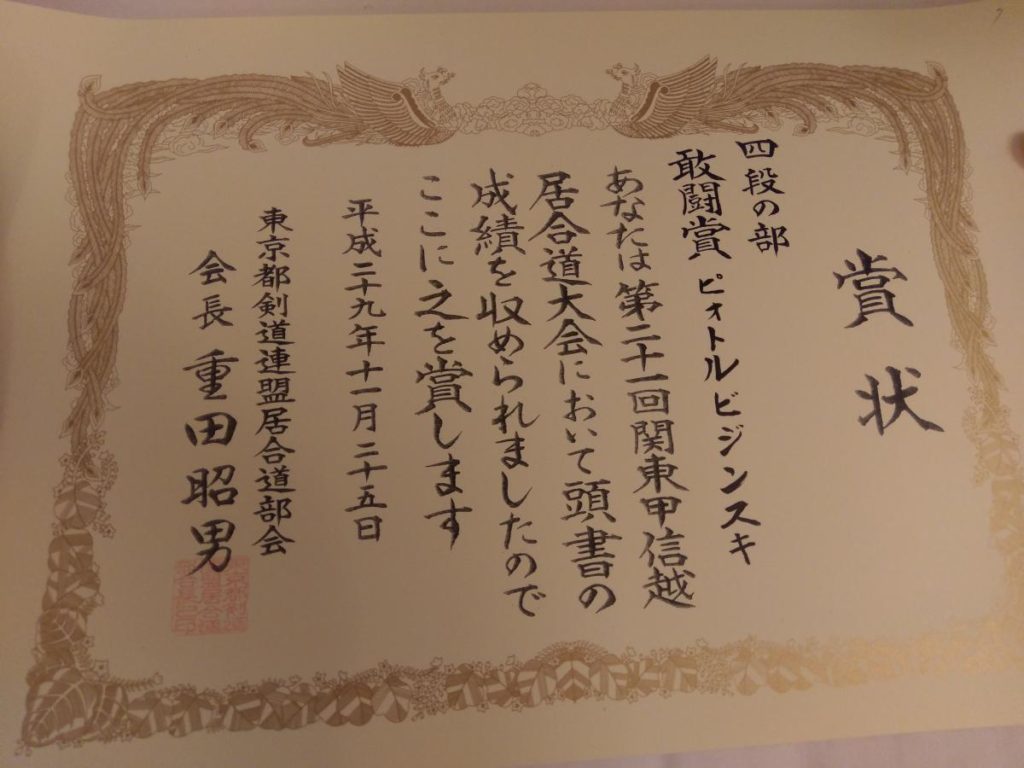 賞状
四段の部
敢闘賞 ピォトルビジンスキ
あなたは第二十一回関東甲信越
居合道大会において頭書の
成績を収められましたので
ここに之を賞します
平成二十九年十一月二十五日
東京都剣道連盟居合道部会
会長 重田昭男